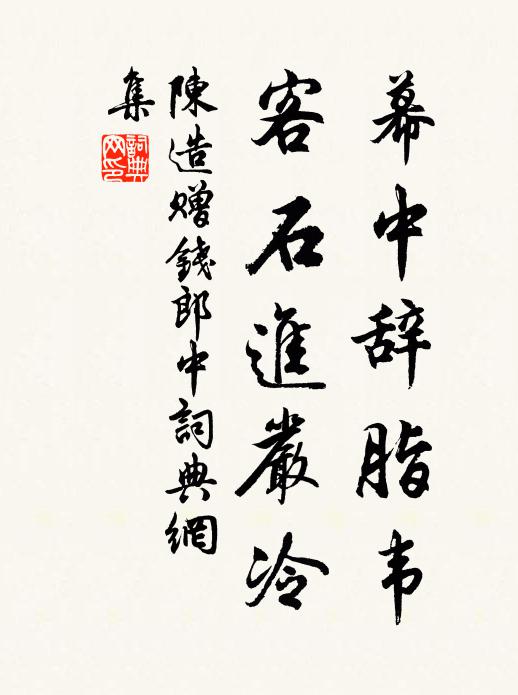 幕中辞脂韦
客石進嚴冷
陳造贈錢郎中詞典網
集
詞典網印